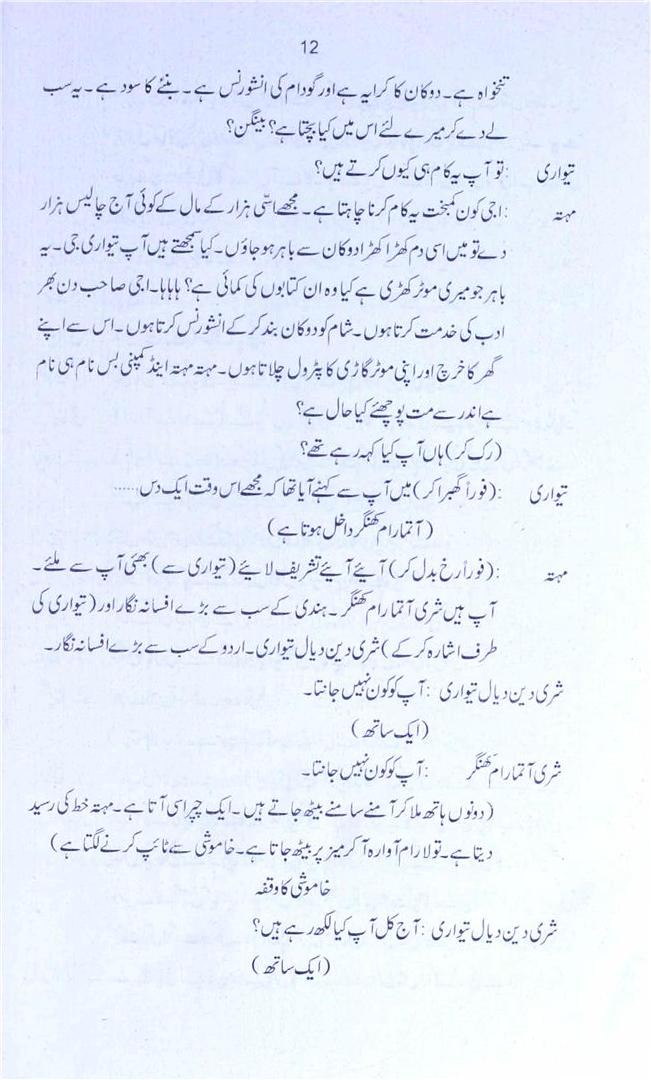 12
تنخواہ ہے۔ دوکان کا کرایہ ہے اور گودام کی انشورنس ہے۔ بننئے کا سود ہے۔ یہ سب
لے دے کر میرے لئے اس میں کیا بچتا ہے؟ بینگن؟
تیواری : تو آپ یہ کام ہی کیوں کرتے ہیں؟
مہتہ : اجی کون کمبخت یہ کام کرنا چاہتا ہے۔ مجھے اسّی ہزار کے مال کے کوئی آج چالیس ہزار
دے تو میں اسی دم کھڑا کھڑا دوکان سے باہر ہو جاؤں۔ کیا سمجھتے ہیں آپ تیواری جی۔ یہ
باہر جو میری موٹر کھڑی ہے کیا وہ ان کتابوں کی کمائی ہے؟ ہاہاہا۔ اجی صاحب دن بھر
ادب کی خدمت کرتا ہوں۔ شام کو دوکان بند کر کے انشورنس کرتا ہوں۔ اس سے اپنے
گھر کا خرچ اور اپنی موٹر گاڑی کا پٹرول چلاتا ہوں۔ مہتہ مہتہ اینڈ کمپنی بس نام ہی نام
ہے اندر سے مت پوچھئے کیا حال ہے؟
(رک کر) ہاں آپ کیا کہہ رہے تھے؟
تیواری : (فوراً گھبرا کر) میں آپ سے کہنے آیا تھا کہ مجھے اس وقت ایک دس......
(آتمارام کھنگر داخل ہوتا ہے)
مہتہ : (فوراً رخ بدل کر) آیئے آیئے تشریف لایئے (تیواری سے) بھئی آپ سے ملئے۔
آپ ہیں شری آتمارام کھنگر۔ ہندی کے سب سے بڑے افسانہ نگار اور (تیواری کی
طرف اشارہ کر کے) شری دین دیال تیواری۔ اردو کے سب سے بڑے افسانہ نگار۔
شری دین دیال تیواری : آپ کو کون نہیں جانتا۔
(ایک ساتھ)
شری آتمارام کھنگر : آپ کو کون نہیں جانتا۔
(دونوں ہاتھ ملا کر آمنے سامنے بیٹھ جاتے ہیں۔ ایک چپراسی آتا ہے۔ مہتہ خط کی رسید
دیتا ہے۔ تولا رام آوارہ آ کر میز پر بیٹھ جاتا ہے۔ خاموشی سے ٹائپ کرنے لگتا ہے)
خاموشی کا وقفہ
شری دین دیال تیواری : آج کل آپ کیا لکھ رہے ہیں؟
(ایک ساتھ)